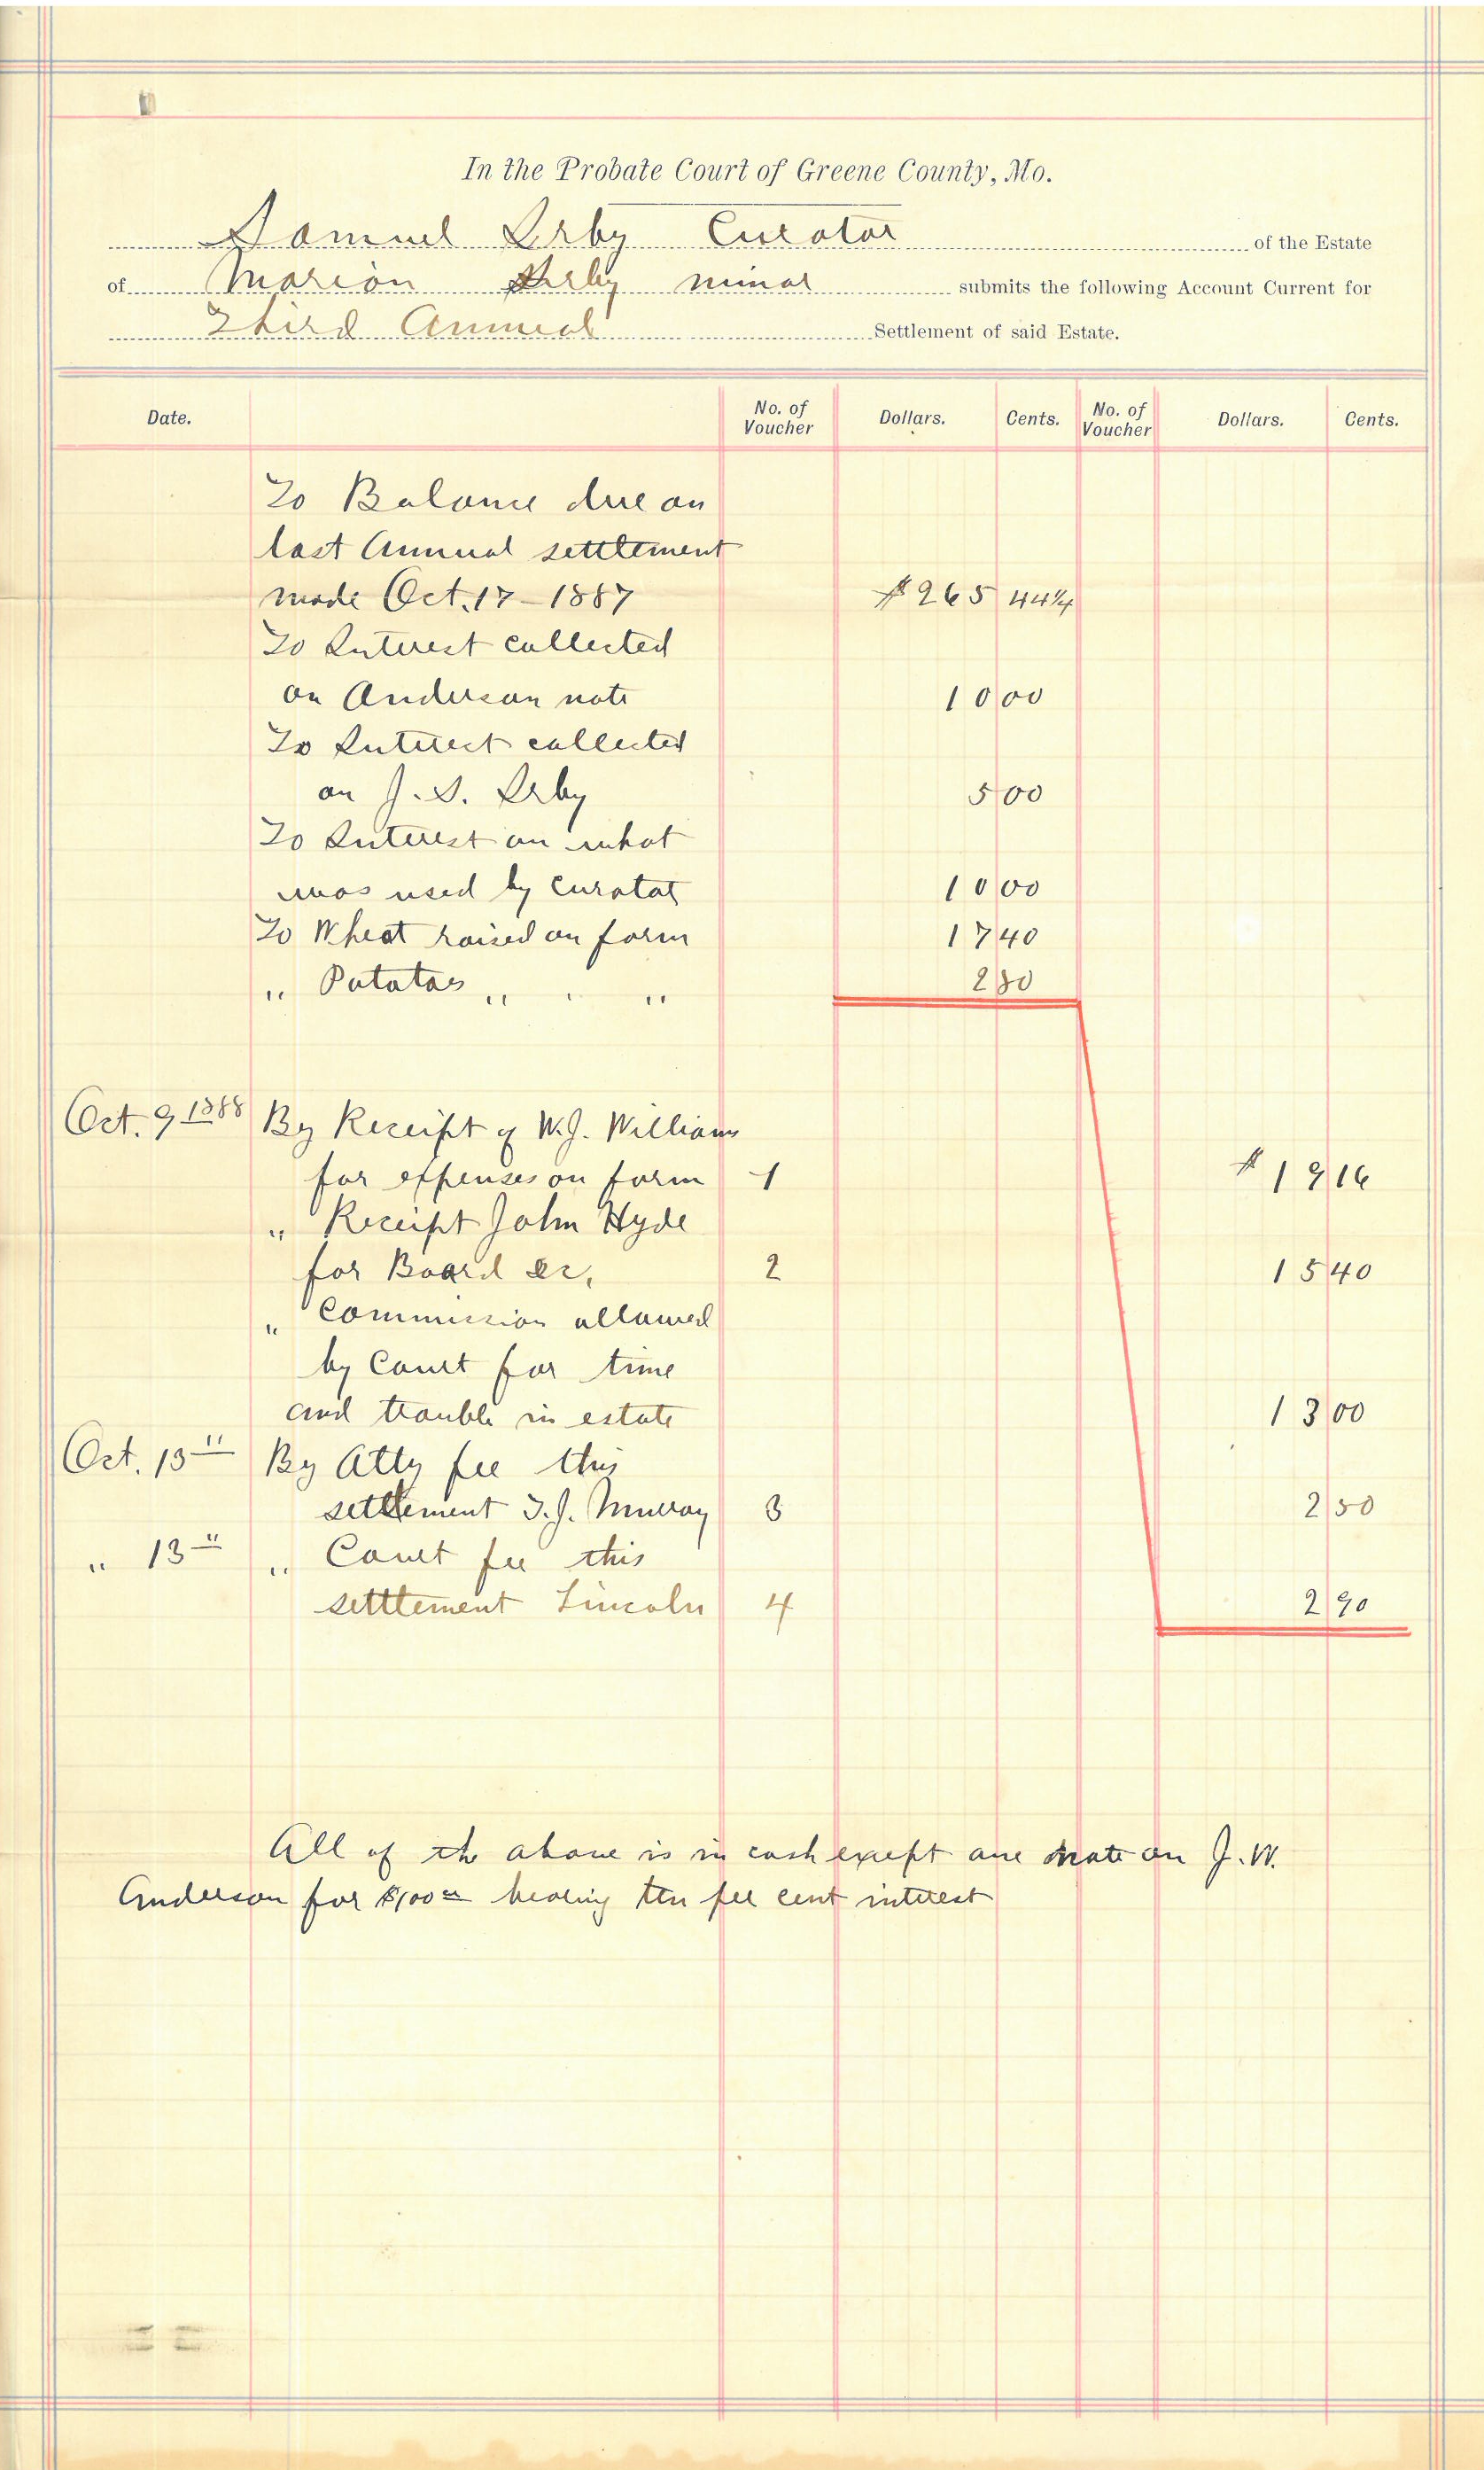 In the Probate Court of Greene County, Mo.
Samuel Irby Curator of the Estate
of Marion Irby minor submits the following Account Current for
Third Annual Settlement of said Estate.
Date. No. of Voucher Dollars. Cents. No. of Voucher Dollars. Cents.
To Balance due on
last Annual settlement
made Oct. 17 - 1887 $265 44¼
To Interest collected
on Anderson note 10 00
To Interest collected
on J. S. Irby 5 00
To Interest on what
was used by curator 10 00
To Wheat raised on farm 17 40
" Potatos " " 2 80
Oct. 9 1888 By Receipt of W. J. Williams
for expenses on farm 1 $19 16
" Receipt John Hyde
for Board &c, 2 15 40
" Commission allowed
by Court for time
and trouble in estate 13 00
Oct. 13" By Atty fee this
settlement T. J. Murray 3 2 50
" 13" " Court fee this
settlement Lincoln 4 2 90
All of th above is in cash except one note on J. W.
Anderson for $100 00 bearing ten per cent interest